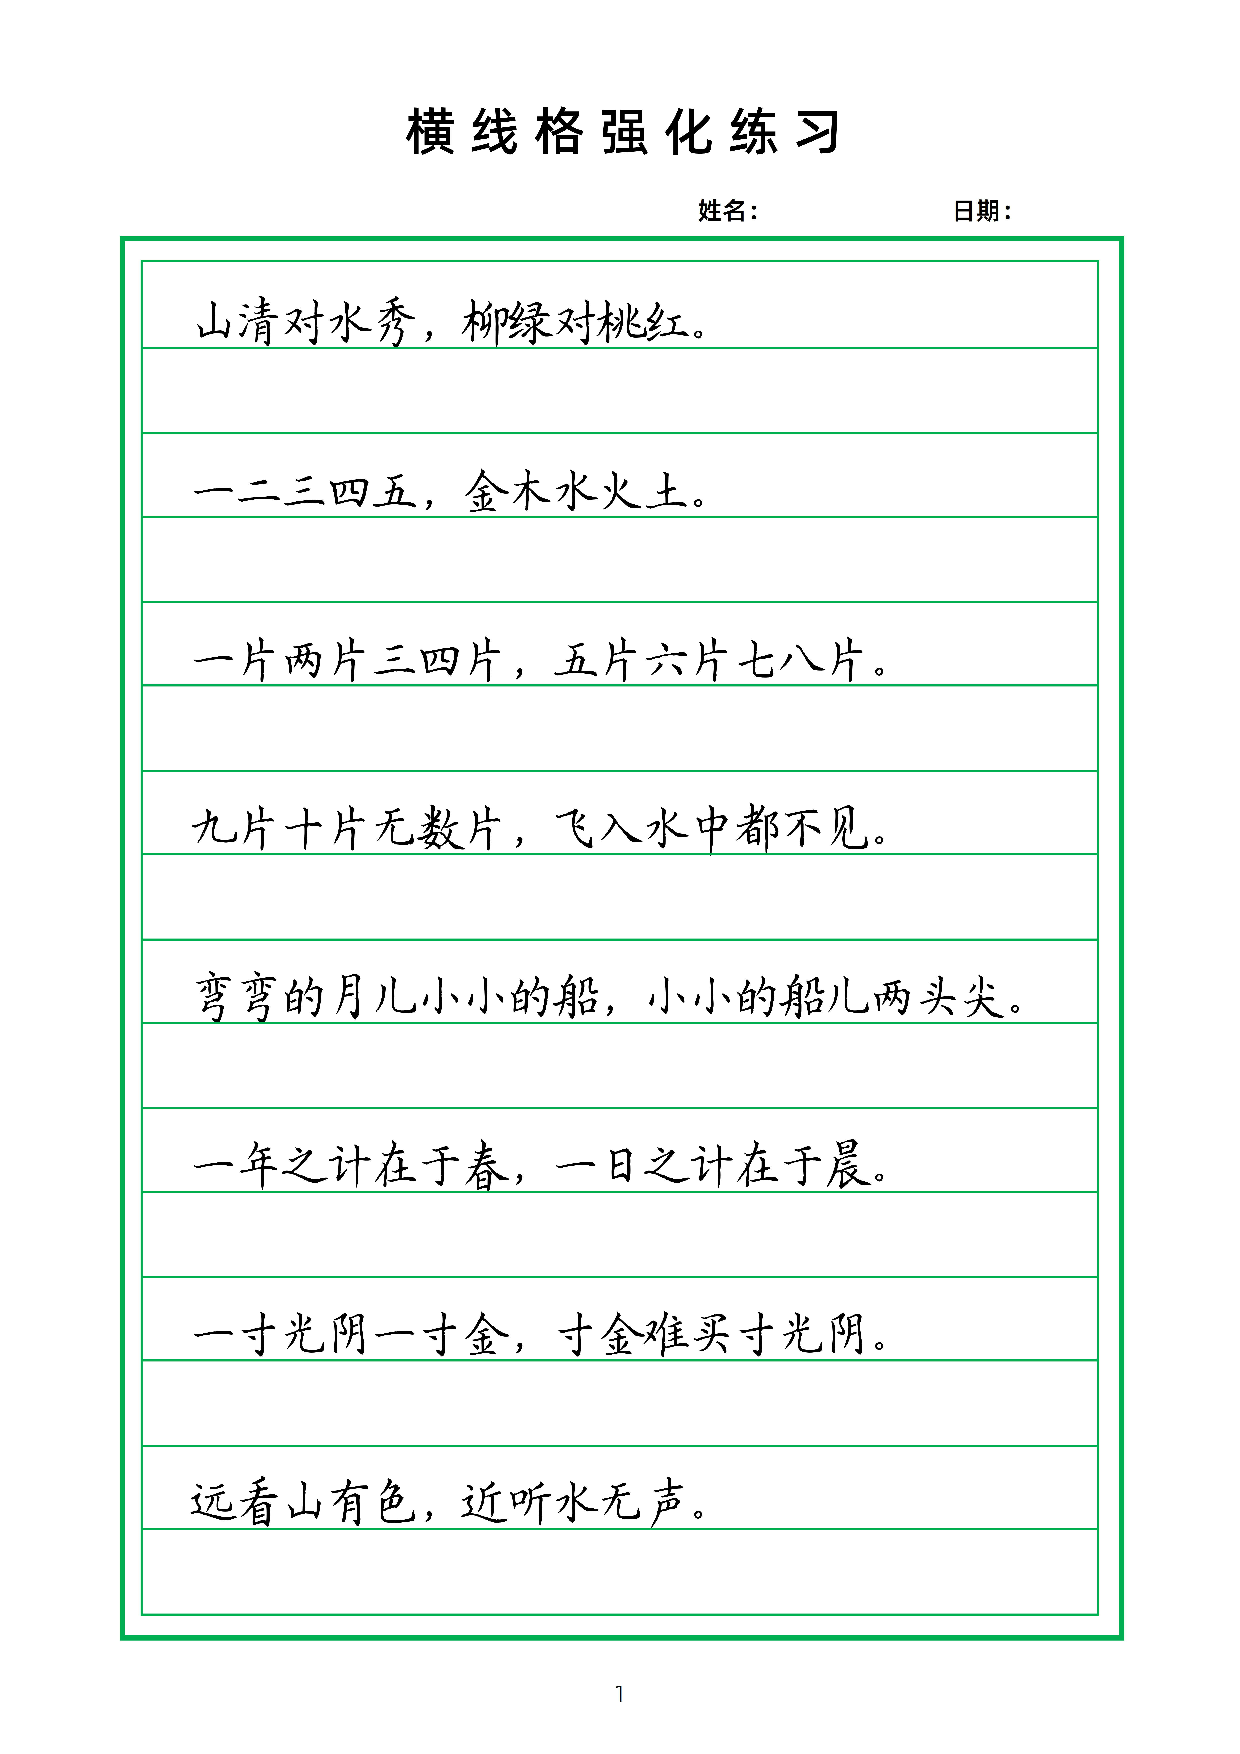 横线格强化练习
姓名： 日期：
山清对水秀，柳绿对桃红。
一二三四五，金木水火土。
一片两片三四片，五片六片七八片。
九片十片无数片，飞入水中都不见。
弯弯的月儿小小的船，小小的船儿两头尖。
一年之计在于春，一日之计在于晨。
一寸光阴一寸金，寸金难买寸光阴。
远看山有色，近听水无声。
1